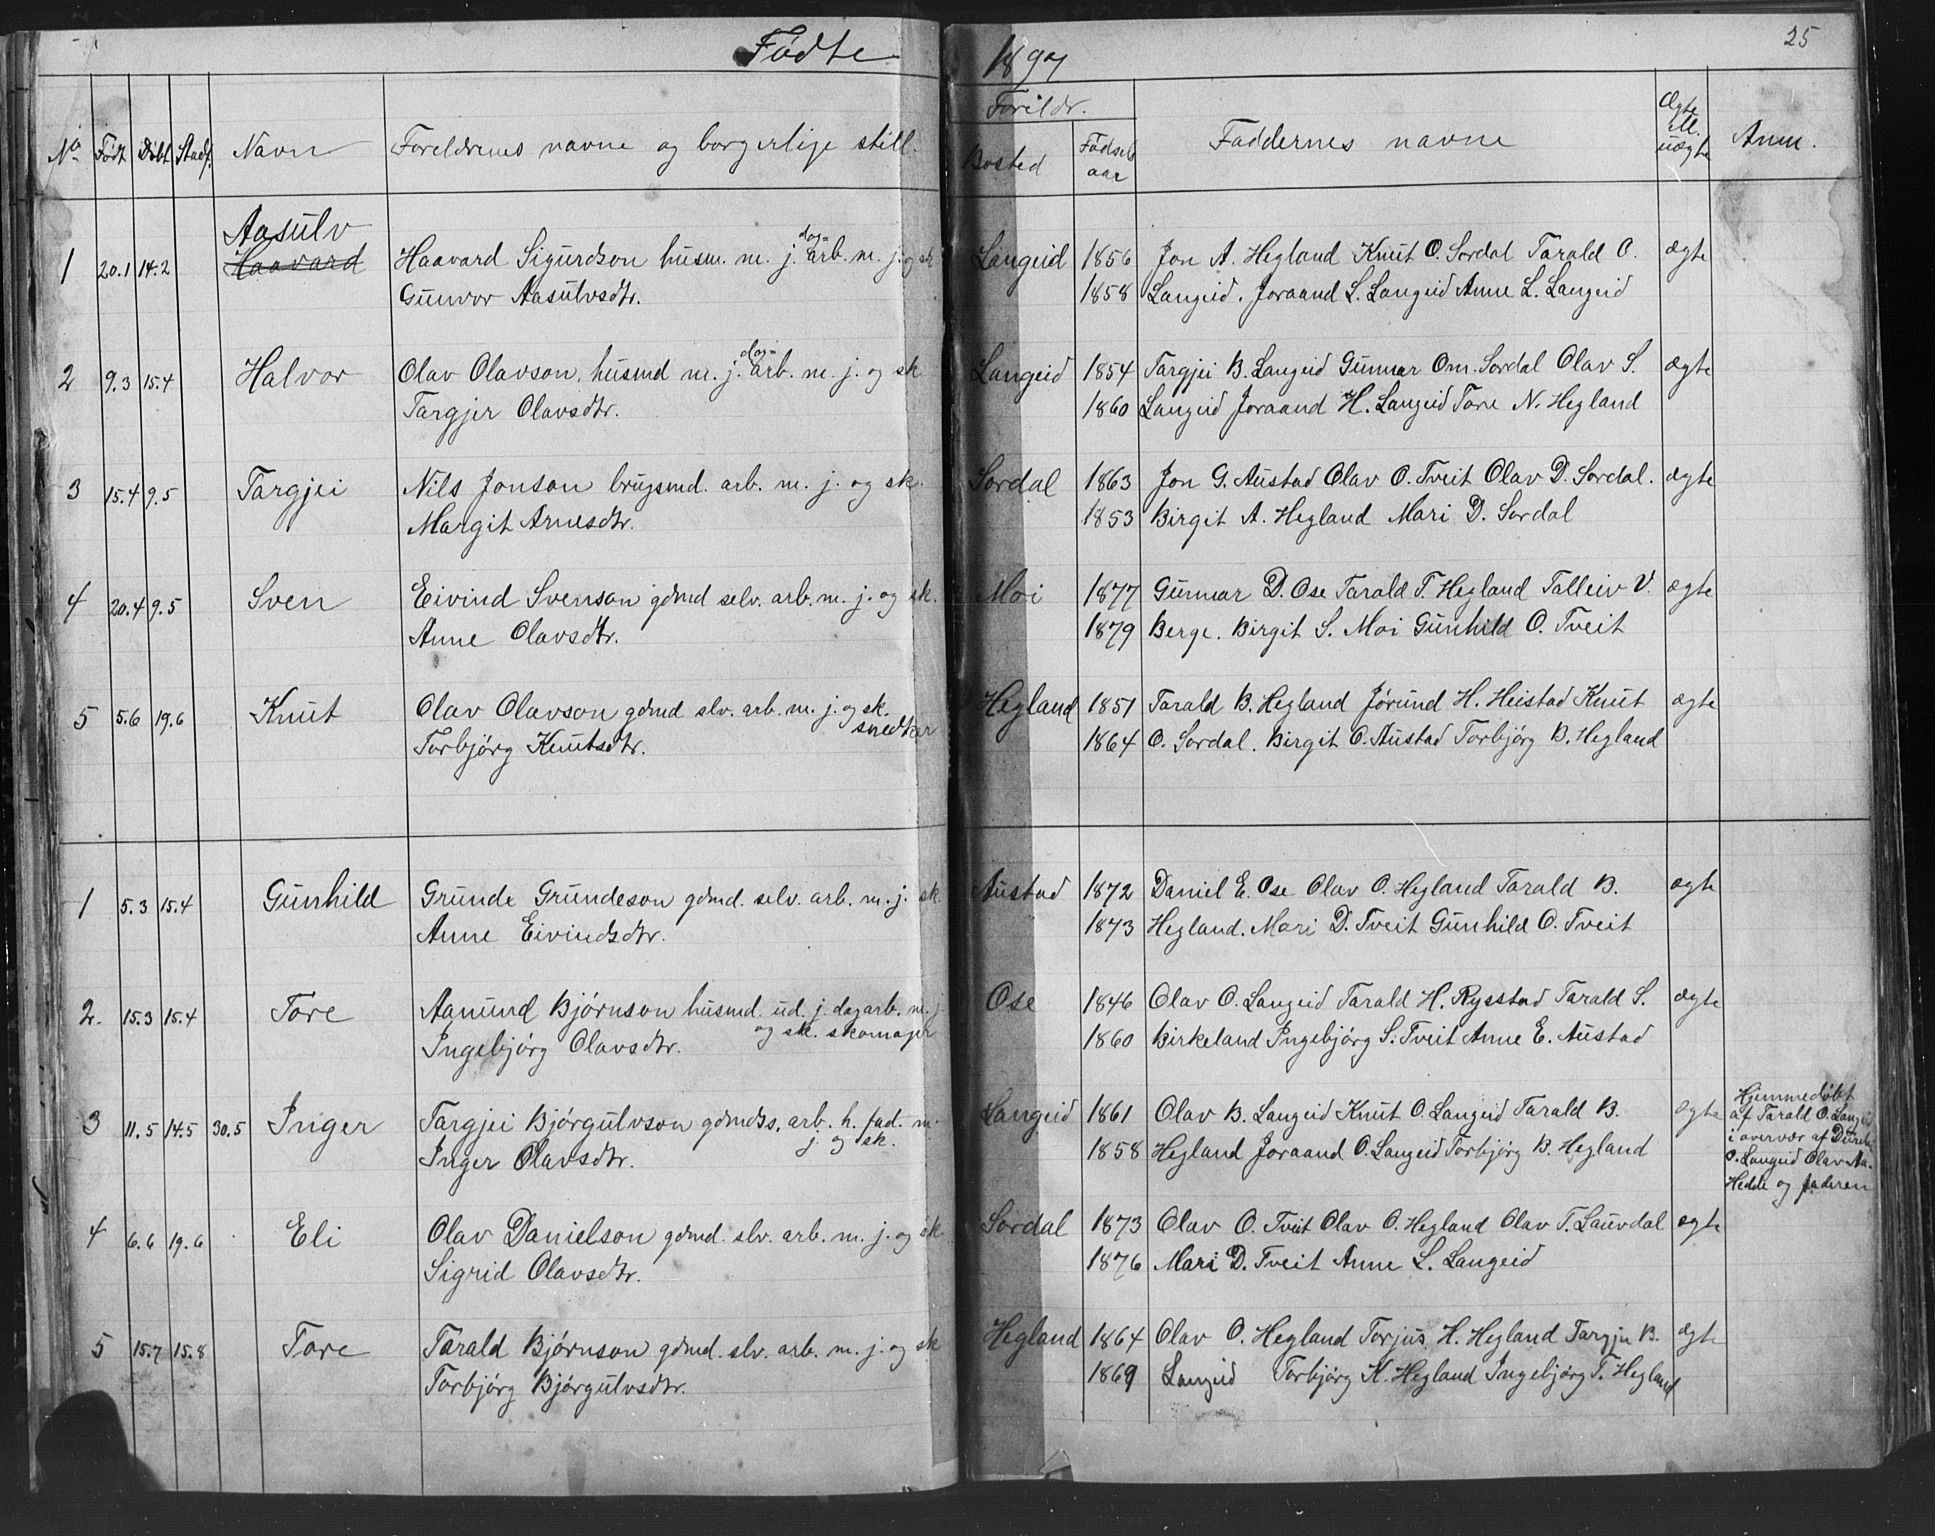 Fødte 1897 25
No Født Døbt Stadf. Navn Foreldrenes navne og borgerlige still. Foreldr. Bosted Fødselsaar Faddernes navne Ægte ell. uægte Anm.
Aasulv
1 20.1 14.2 Haavard Haavard Sigurdson husm. m. j. dag- arb. m. j. og sk Langeid 1856 Jon A. Hegland Knut O. Sordal Tarald O. ægte
Gunvor Aasulvsdtr. 1858 Langeid. Joraand L. Langeid Anne L. Langeid
2 9.3 15.4 Halvor Olav Olavson. husmd m. j. dag- arb. m. j. og sk Langeid 1854 Targjei B. Langeid Gunnar Om. Sordal Olav S. ægte
Targjer Olavsdtr. 1860 Langeid Joraand H. Langeid Tore N. Hegland
3 15.4 9.5 Targjei Nils Jonson brugsmd. arb. m. j. og sk. Sordal 1863 Jon G. Austad Olav O. Tveit Olav D. Sordal. ægte
Margit Arnesdtr. 1853 Birgit A. Hegland Mari D. Sordal
4 20.4 9.5 Sven Eivind Svenson gdmd selv. arb. m. j. og sk. Moi 1877 Gunnar D. Ose Tarald T. Hegland Talleiv V. ægte
Anne Olavsdtr. 1879 Berge. Birgit S. Moi Gunhild O. Tveit
5 5.6 19.6 Knut Olav Olavson gdmd slv. arb. m. j. og sk. Hegland 1851 Tarald B. Hegland Jørund H. Heistad Knut ægte
Torbjørg Knutsdtr. snedker 1864 O. Sordal. Birgit O. Austad Torbjørg B. Hegland
1 5.3 15.4 Gunhild Grunde Grundeson gdmd. selv. arb. m. j. sk. Austad 1872 Daniel E. Ose Olav O. Hegland Tarald B. ægte
Anne Eivindsdtr. 1873 Hegland. Mari D. Tveit Gunhild O. Tveit
2. 15.3 15.4 Tore Aanund Bjørnson husmd. ud. j. dagarb. m. j. Ose 1846 Olav O. Langeid Tarald H. Rysstad Tarald S. ægte
Ingebjørg Olavsdtr. og sk. skomager 1860 Birkeland Ingebjørg S. Tveit Anne E. Austad
3 11.5 14.5 30.5 Inger Targjei Bjørgulvson gdmdss. arb. h. fad. m. Langeid 1861 Olav B. Langeid Knut O. Langeid Tarald B. ægte Hjemmedøbt
j. og sk. af Tarald O. Langeid
Inger Olavsdtr. 1858 Hegland Joraand O. Langeid Torbjørg B. Hegland i overvær af
O. Langeid Olav Aa.
Hedde og faderen
4 6.6 19.6 Eli Olav Danielson gdmd. slv. arb. m. j. og sk Sordal 1873 Olav O. Tveit Olav O. Hegland Olav T. Lauvdal ægte
Sigrid Olavsdtr. 1876 Mari D. Tveit Anne L. Langeid
5 15.7 15.8 Tore Tarald Bjørnson gdmd. slv. arb. m. j. og sk Hegland 1864 Olav O. Hegland Torjus H. Hegland Targju B. ægte
Torbjørg Bjørgulvsdtr. 1869 Langeid Torbjørg K. Hegland Ingebjørg T. Hegland